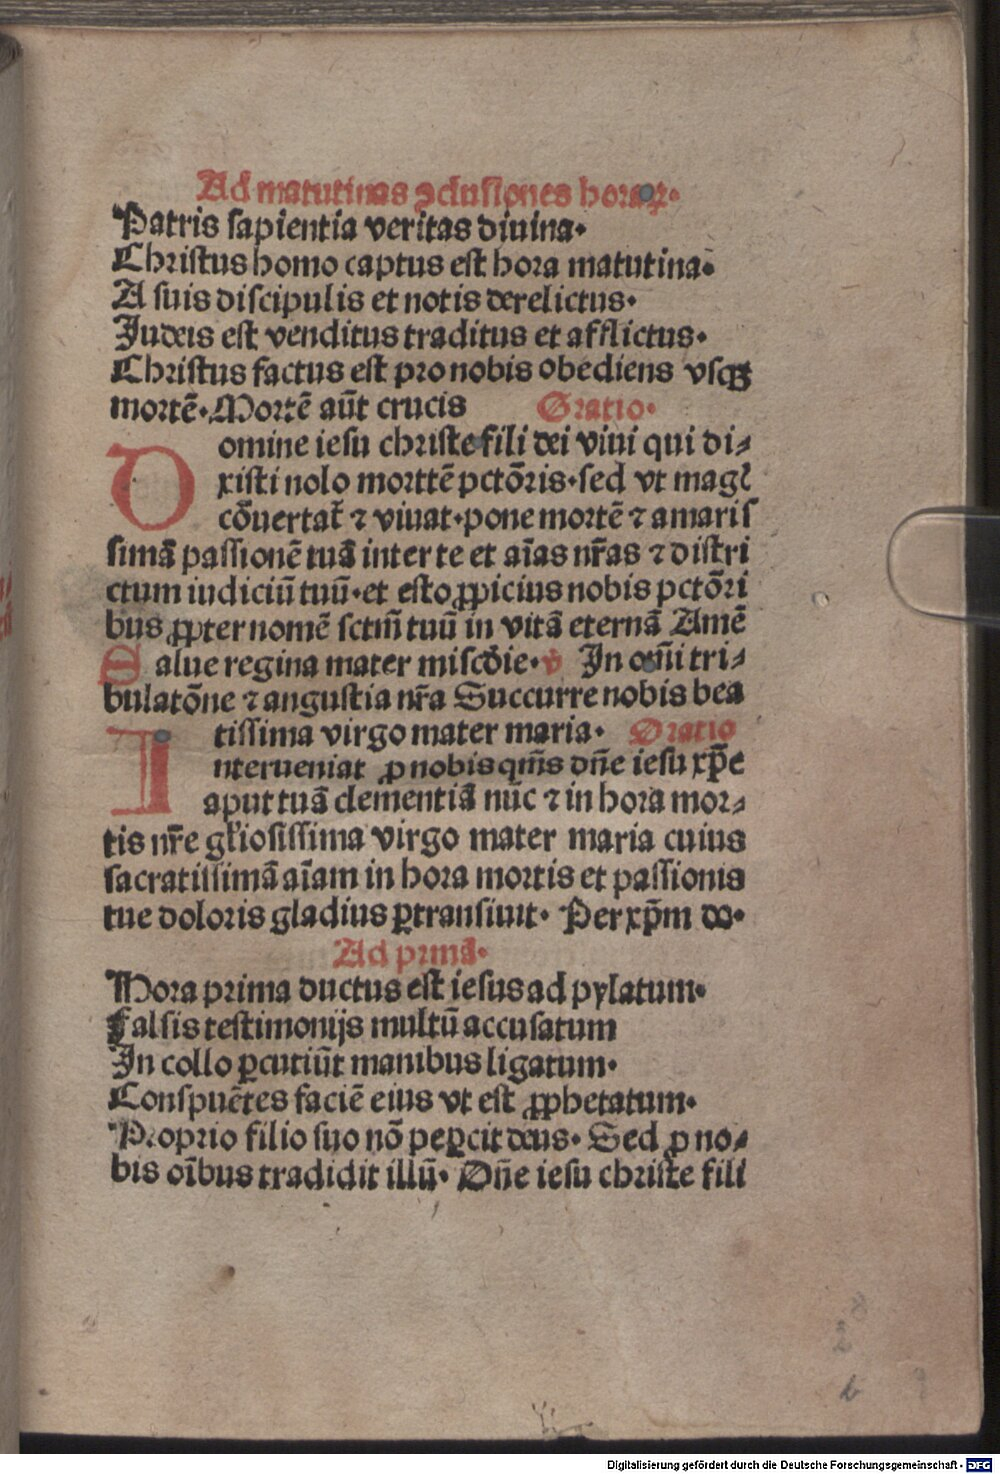 Ad matutinas ꝯclusiones horaꝝ.
Patris sapientia veritas diuina.
Christus homo captus est hora matutina.
A suis discipulis et notis derelictus.
Judeis est venditus traditus et afflictus.
Christus factus est pro nobis obediens vsqꝫ
mortē. Mortē aūt crucis Oratio.
Domine iesu christe fili dei viui qui di⸗
xisti nolo morttē pctōris. sed vt magꝭ
cōuertat̄ ⁊ viuat. pone mortē ⁊ amaris
simā passionē tuā inter te et aīas nr̄as ⁊ distri
ctum iudiciū tuū. et esto ꝓpicius nobis pctōri
bus ꝓpter nomē sctm̄ tuū in vitā eternā Amē
Salue regina mater misc̄die. v̄ In om̄i tri⸗
bulatōne ⁊ angustia nr̄a Succurre nobis bea
tissima virgo mater maria. Oratio
Interueniat ꝓ nobis qm̄s dn̄e iesu xp̄e
aput tuā clementiā nūc ⁊ in hora mor⸗
tis nr̄e gl̄iosissima virgo mater maria cuius
sacratissimā aīam in hora mortis et passionis
tue doloris gladius ꝑtransiuit. Per xp̄m do.
Ad primā.
Hora prima ductus est iesus ad pylatum.
Falsis testimonijs multū accusatum
In collo ꝑcutiūt manibus ligatum.
Conspuētes faciē eius vt est ꝓphetatum.
Proprio filio suo nō peꝑcit deus. Sed ꝓ no⸗
bis oībus tradidit illū. Dn̄e iesu christe fili
Digitalisierung gefördert durch die Deutsche Forschungsgemeinschaft - DFG